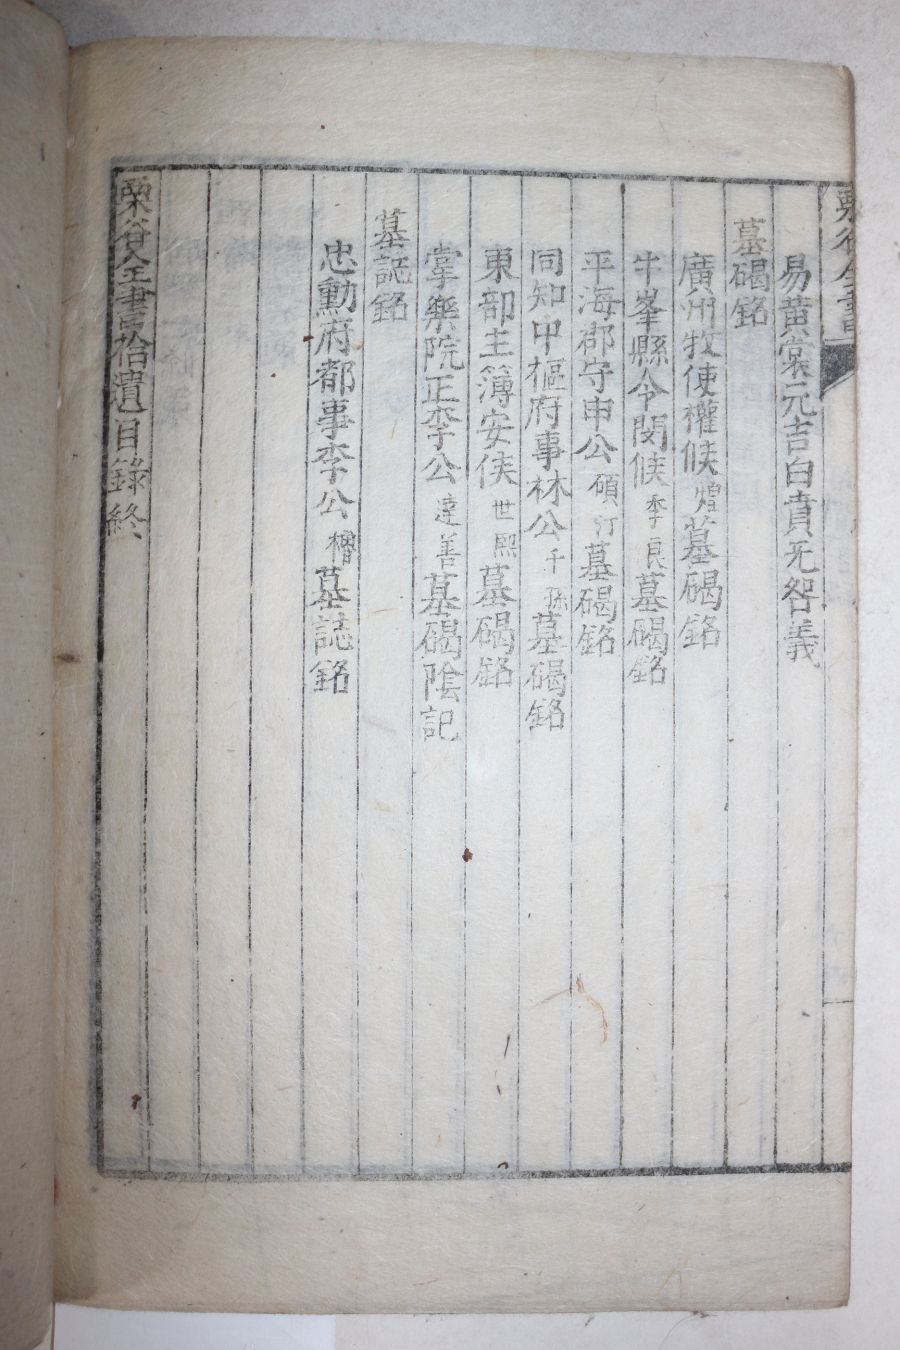 栗谷全書
易黃裳元吉白賁无咎義
墓碣銘
廣州牧使權候煌墓碣銘
牛峯縣令閔候季良墓碣銘
平海郡守申公碩汀墓碣銘
同知中樞府事林公千孫墓碣銘
東部主簿安侯世熙墓碣銘
掌樂院正李公達善墓碣陰記
墓誌銘
忠勳府都事李公櫓墓誌銘
栗谷全書拾遺目錄終